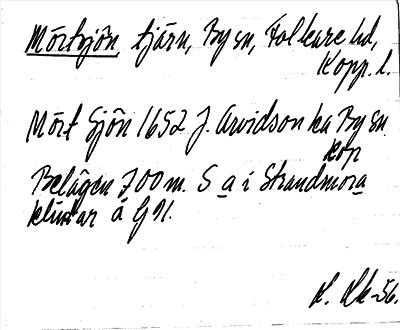 Mörtsjön, tjärn, By sn, Folkare hd,
Kopp. l.
Mört Sjön 1652 J. Arvidson ka By sn
kop
Belägen 700 m. S a i Strandmora
klintar å GK.
L. Lk-56.